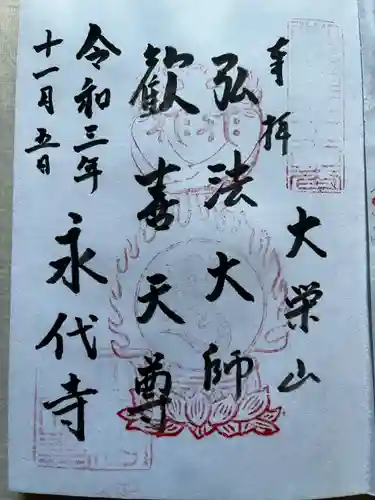 奉拝
大栄山
弘法大師
歓喜天尊
永代寺
令和三年
十一月五日